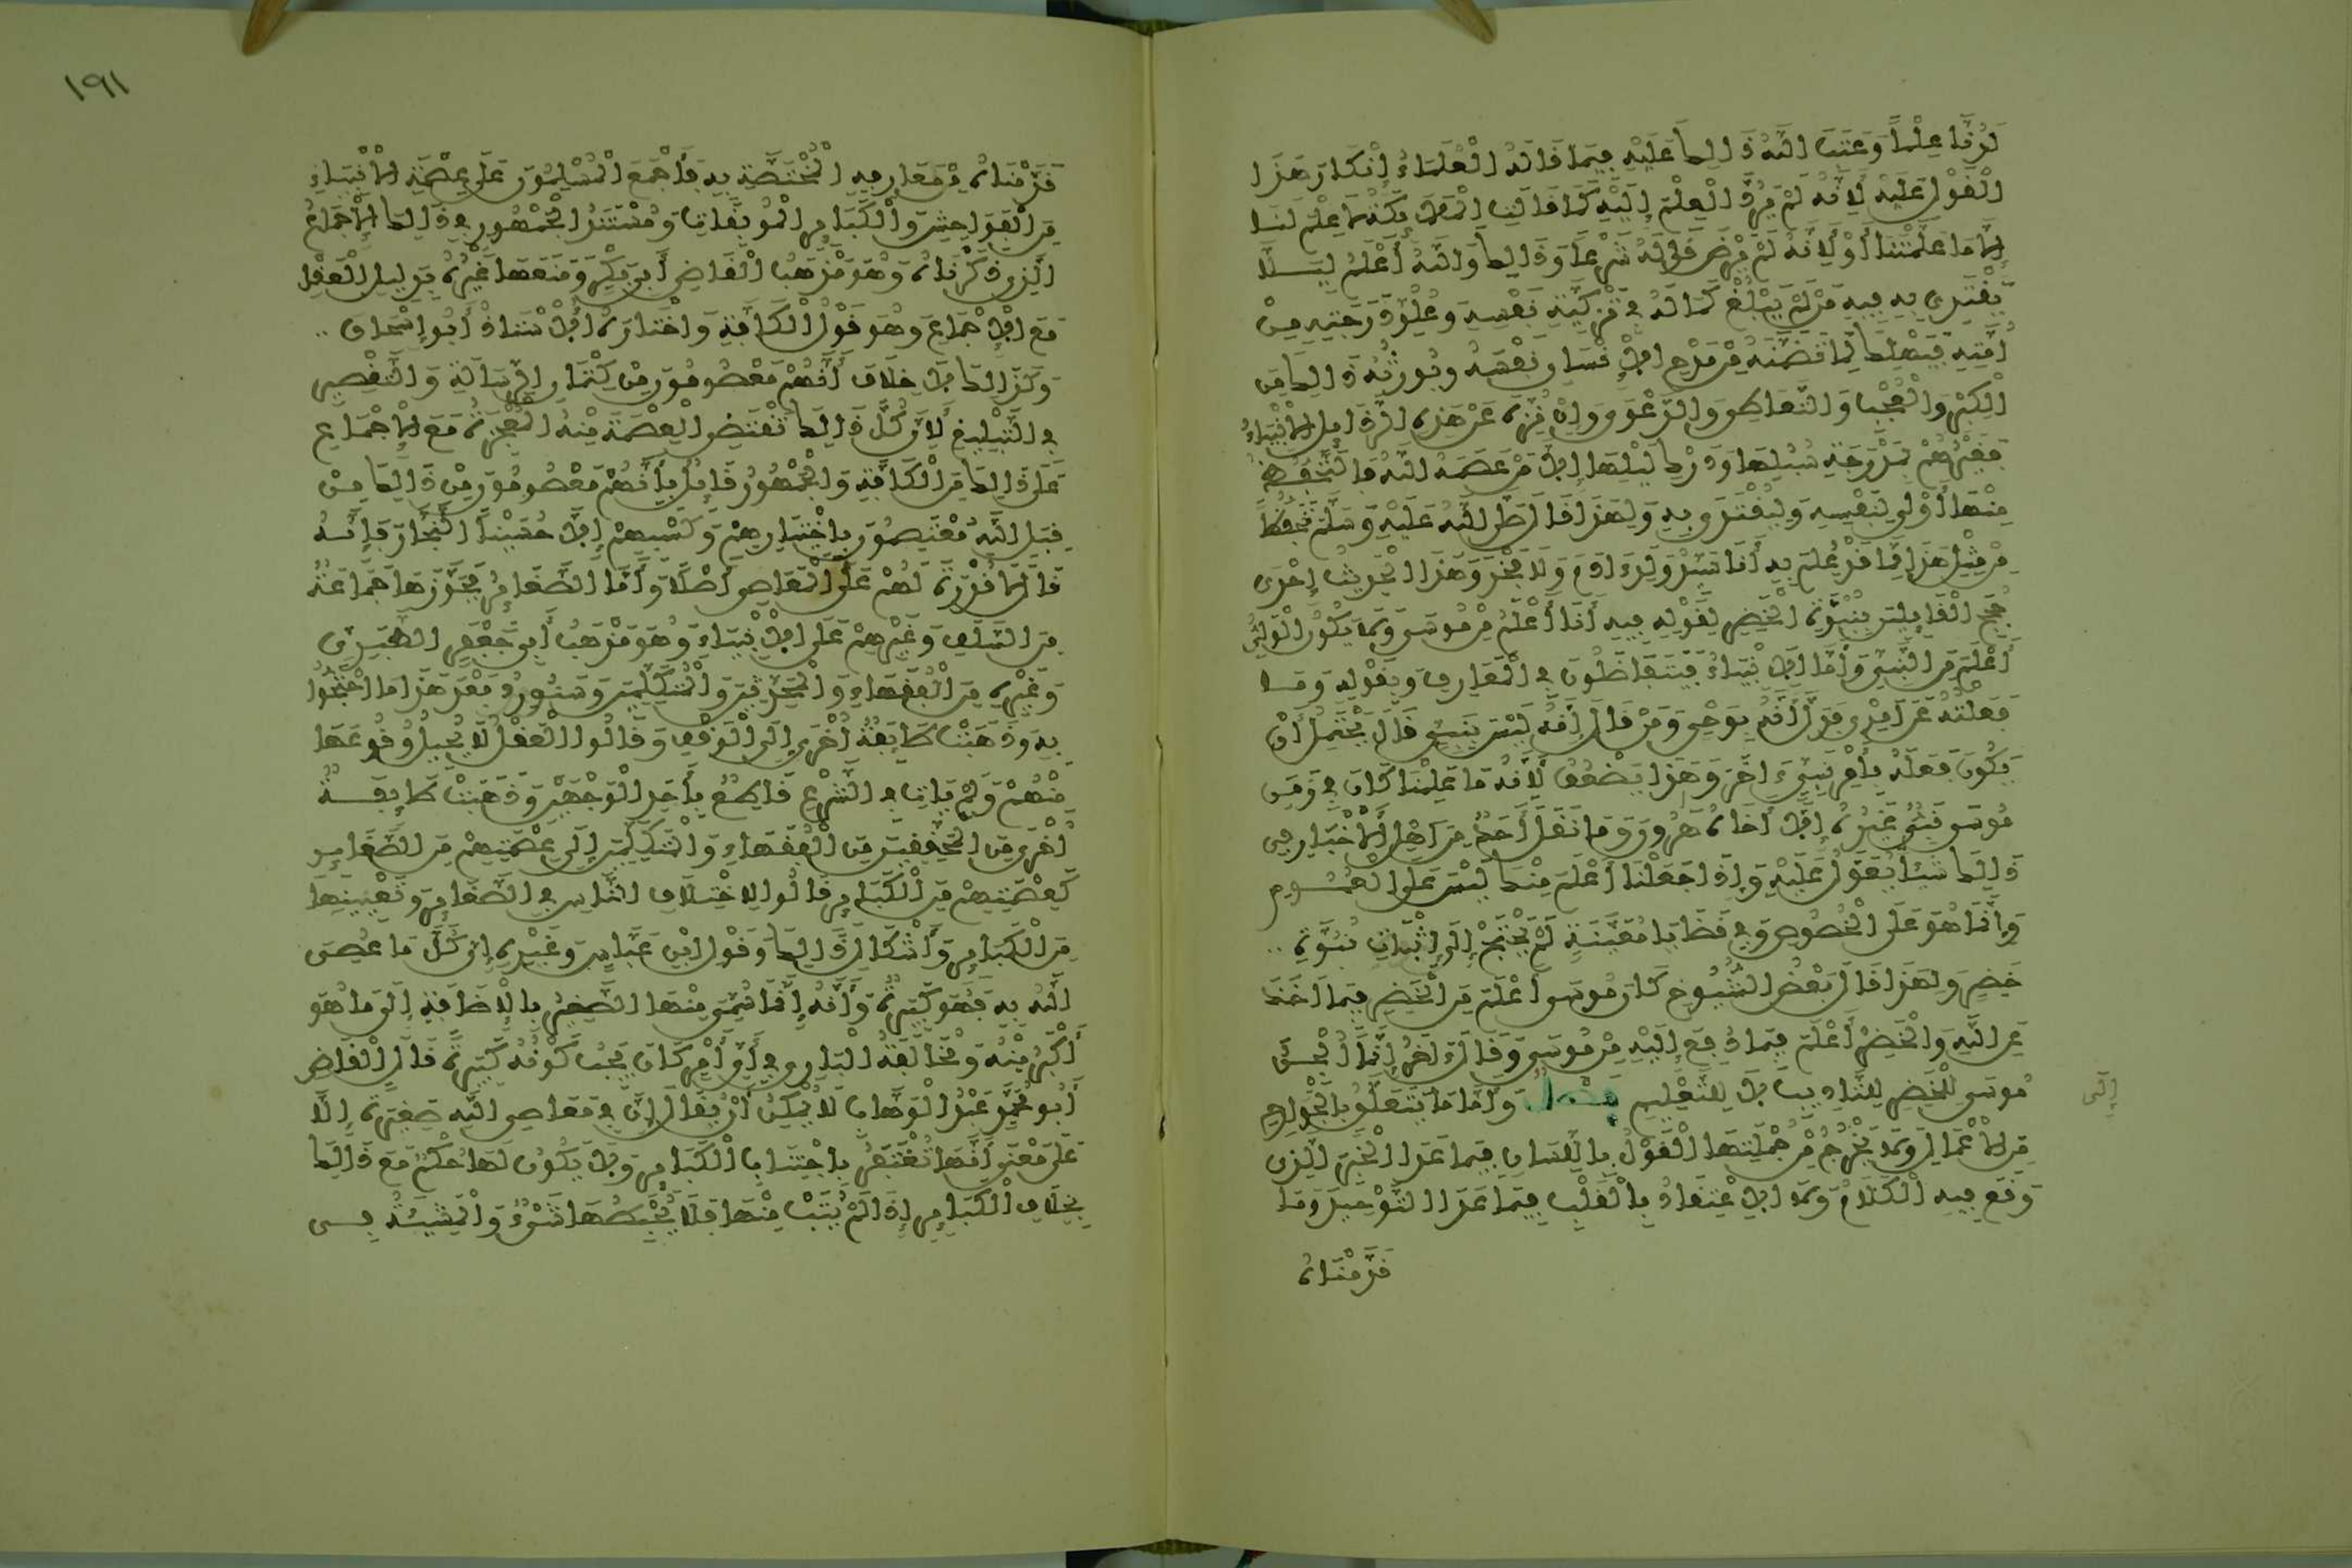 لَدُنَّا عِلْمًا وَعَتَبَ اللَّهُ ذَالِكَ عَلَيْهِ فِيمَا قَالَهُ الْعُلَمَاءُ إِنْكَارَ هَذَا
الْقَوْلِ عَلَيْهِ لِأَنَّهُ لَمْ يَرُدَّ الْعِلْمَ إِلَيْهِ كَمَا قَالَتِ الْمَلَائِكَةُ لَا عِلْمَ لَنَا
إِلَّا مَا عَلَّمْتَنَا أَوْ لِأَنَّهُ لَمْ يَرْضَ قَوْلَهُ شَرْعًا وَذَالِكَ وَاللَّهُ أَعْلَمُ لِيَلَّا
يَقْتَدِيَ بِهِ فِيهِ مَنْ لَمْ يَبْلُغْ كَمَالَهُ فِي تَزْكِيَةِ نَفْسِهِ وَعُلُوِّ دَرَجَتِهِ مِنْ
أُمَّتِهِ فَيَهْلِكَ لِمَا تَضَمَّنَهُ مِنْ مَدْحِ الْإِنْسَانِ نَفْسَهُ وَيُورِثُهُ ذَالِكَ مِنَ
الْكِبْرِ وَالْعُجْبِ وَالتَّعَاطِي وَالدَّعْوَى وَإِنْ نُزِّهَ عَنْ هَذِهِ الرَّذَائِلِ الْأَنْبِيَاءُ
فَغَيْرُهُمْ بِمَدْرَجَةِ سُبُلِهَا وَدَرْكِ لَيْلِهَا إِلَّا مَنْ عَصَمَهُ اللَّهُ فَالتَّحَفُّظُ
مِنْهَا أَوْلَى لِنَفْسِهِ وَلِيُقْتَدَى بِهِ وَلِهَذَا قَالَ صَلَّى اللَّهُ عَلَيْهِ وَسَلَّمَ تَحَفُّظًا
مِنْ مِثْلِ هَذَا مِمَّا قَدْ عُلِمَ بِهِ أَنَا سَيِّدُ وَلَدِ ءَادَمَ وَلَا فَخْرَ وَهَذَا الْحَدِيثُ إِحْدَى
حُجَجِ الْقَائِلِينَ بِنُبُوَّةِ الْخَضِرِ لِقَوْلِهِ فِيهِ أَنَا أَعْلَمُ مِنْ مُوسَى وَلَا يَكُونُ الْوَلِيُّ
أَعْلَمَ مِنَ النَّبِيِّ وَأَمَّا الْأَنْبِيَاءُ فَيَتَفَاضَلُونَ فِي الْمَعَارِفِ وَبِقَوْلِهِ وَمَا
فَعَلْتُهُ عَنْ أَمْرِي فَدَلَّ أَنَّهُ بِوَحْيٍ وَمَنْ قَالَ إِنَّهُ لَيْسَ بِنَبِيٍّ قَالَ يَحْتَمِلُ أَنْ
يَكُونَ فَعَلَهُ بِأَمْرِ نَبِيٍّ ءَاخَرَ وَهَذَا يَضْعُفُ لِأَنَّهُ مَا عَلِمْنَا كَانَ فِي زَمَنِ
مُوسَى نَبِيٌّ غَيْرُهُ إِلَّا أَخَاهُ هَرُونَ وَمَا نَقَلَ أَحَدٌ مِنْ أَهْلِ الْأَخْبَارِ فِي
ذَالِكَ شَيْئًا يُعَوَّلُ عَلَيْهِ وَإِذَا جَعَلْنَا أَعْلَمَ مِنْكَ لَيْسَ عَلَى الْعُمُومِ
وَإِنَّمَا هُوَ عَلَى الْخُصُوصِ وَفِي قَضَايَا مُعَيَّنَةٍ لَمْ يُحْتَجْ إِلَى إِثْبَاتِ نُبُوَّةِ ..
خَضِرٍ وَلِهَذَا قَالَ بَعْضُ الشُّيُوخِ كَانَ مُوسَى أَعْلَمَ مِنَ الْخَضِرِ فِيمَا أَخَذَ
عَنِ اللَّهِ وَالْخَضِرُ أَعْلَمَ فِيمَا دُفِعَ إِلَيْهِ مِنْ مُوسَى وَقَالَ ءَاخَرُ إِنَّمَا أُلْجِئَ
مُوسَى لِلْخَضِرِ لِلتَّادِيبِ لَا لِلتَّعْلِيمِ فصل وَأَمَّا مَا يَتَعَلَّقُ بِالْجَوَارِحِ
مِنَ الْأَعْمَالِ وَلَا يَخْرُجُ مِنْ جُمْلَتِهَا الْقَوْلُ بِاللِّسَانِ فِيمَا عَدَا الْخَبَرَ الَّذِي
وَقَعَ فِيهِ الْكَلَامُ وَلَا الْإِعْتِقَادُ بِالْقَلْبِ فِيمَا عَدَا التَّوْحِيدَ وَمَا
قَدَّمْنَاهُ
إِلَى
١٩١
قَدَّمْنَاهُ مِنْ مَعَارِفِهِ الْمُخْتَصَّةِ بِهِ فَأَجْمَعَ الْمُسْلِمُونَ عَلَى عِصْمَةِ الْأَنْبِيَاءِ
مِنَ الْفَوَاحِشِ وَالْكَبَائِرِ الْمُوبِقَاتِ وَمُسْتَنَدُ الْجُمْهُورِ فِي ذَالِكَ الْإِجْمَاعُ
الَّذِي ذَكَرْنَاهُ وَهُوَ مَذْهَبُ الْقَاضِي أَبِي بَكْرٍ وَمَنَعَهَا غَيْرُهُ بِدَلِيلِ الْعَقْلِ
مَعَ الْإِجْمَاعِ وَهُوَ قَوْلُ الْكَافَّةِ وَاخْتَارَهُ الْأُسْتَاذُ أَبُو إِسْحَاقَ ..
وَكَذَالِكَ لَا خِلَافَ أَنَّهُمْ مَعْصُومُونَ مِنْ كِتْمَانِ الرِّسَالَةِ وَالتَّقْصِيرِ
فِي التَّبْلِيغِ لِأَنَّ كُلَّ ذَالِكَ تَقْتَضِي الْعِصْمَةَ مِنْهُ الْمُعْجِزَةُ مَعَ الْإِجْمَاعِ
عَلَى ذَالِكَ مِنَ الْكَافَّةِ وَالْجُمْهُورُ قَائِلٌ بِأَنَّهُمْ مَعْصُومُونَ مِنْ ذَالِكَ مِنْ
قِبَلِ اللَّهِ مُعْتَصِمُونَ بِاخْتِيَارِهِمْ وَكَسْبِهِمْ إِلَّا حُسَيْنًا النَّجَّارَ فَإِنَّهُ
قَالَ لَا قُدْرَةَ لَهُمْ عَلَى الْمَعَاصِي أَصْلًا وَأَمَّا الصَّغَائِرُ فَجَوَّزَهَا جَمَاعَةٌ
مِنَ السَّلَفِ وَغَيْرِهِمْ عَلَى الْأَنْبِيَاءِ وَهُوَ مَذْهَبُ أَبِي جَعْفَرٍ الطَّبَرِيِّ
وَغَيْرِهِ مِنَ الْفُقَهَاءِ وَالْمُحَدِّثِينَ وَالْمُتَكَلِّمِينَ وَسَنُورِدُ بَعْدَ هَذَا مَا احْتَجُّوا
بِهِ وَذَهَبَتْ طَائِفَةٌ أُخْرَى إِلَى الْوَقْفِ وَقَالُوا الْعَقْلُ لَا يُحِيلُ وُقُوعَهَا
مِنْهُمْ وَلَمْ يَاتِ فِي الشَّرْعِ قَاطِعٌ بِأَحَدِ الْوَجْهَيْنِ وَذَهَبَتْ طَائِفَةٌ
أُخْرَى مِنَ الْمُحَقِّقِينَ مِنَ الْفُقَهَاءِ وَالْمُتَكَلِّمِينَ إِلَى عِصْمَتِهِمْ مِنَ الصَّغَائِرِ
كَعِصْمَتِهِمْ مِنَ الْكَبَائِرِ قَالُوا لِاخْتِلَافِ النَّاسِ فِي الصَّغَائِرِ وَتَعْيِينِهَا
مِنَ الْكَبَائِرِ وَأَشْكَالِ ذَالِكَ وَقَوْلِ ابْنِ عَبَّاسٍ وَغَيْرِهِ إِنَّ كُلَّ مَا عُصِيَ
اللَّهُ بِهِ فَهُوَ كَبِيرَةٌ وَأَنَّهُ إِنَّمَا سُمِّيَ مِنْهَا الصَّغِيرُ بِالْإِضَافَةِ إِلَى مَا هُوَ
أَكْبَرُ مِنْهُ وَمُخَالَفَةُ الْبَارِي فِي أَيِّ أَمْرٍ كَانَ يَجِبُ كَوْنُهُ كَبِيرَةً قَالَ الْقَاضِي
أَبُو مُحَمَّدٍ عَبْدُ الْوَهَّابِ لَا يُمْكِنُ أَنْ يُقَالَ إِنَّ فِي مَعَاصِي اللَّهِ صَغِيرَةً إِلَّا
عَلَى مَعْنَى أَنَّهَا تُغْتَفَرُ بِاجْتِنَابِ الْكَبَائِرِ وَلَا يَكُونُ لَهَا حُكْمٌ مَعَ ذَالِكَ
بِخِلَافِ الْكَبَائِرِ إِذَا لَمْ يُتَبْ مِنْهَا فَلَا يُحْبِطُهَا شَيْءٌ وَالْمَشِيئَةُ فِي